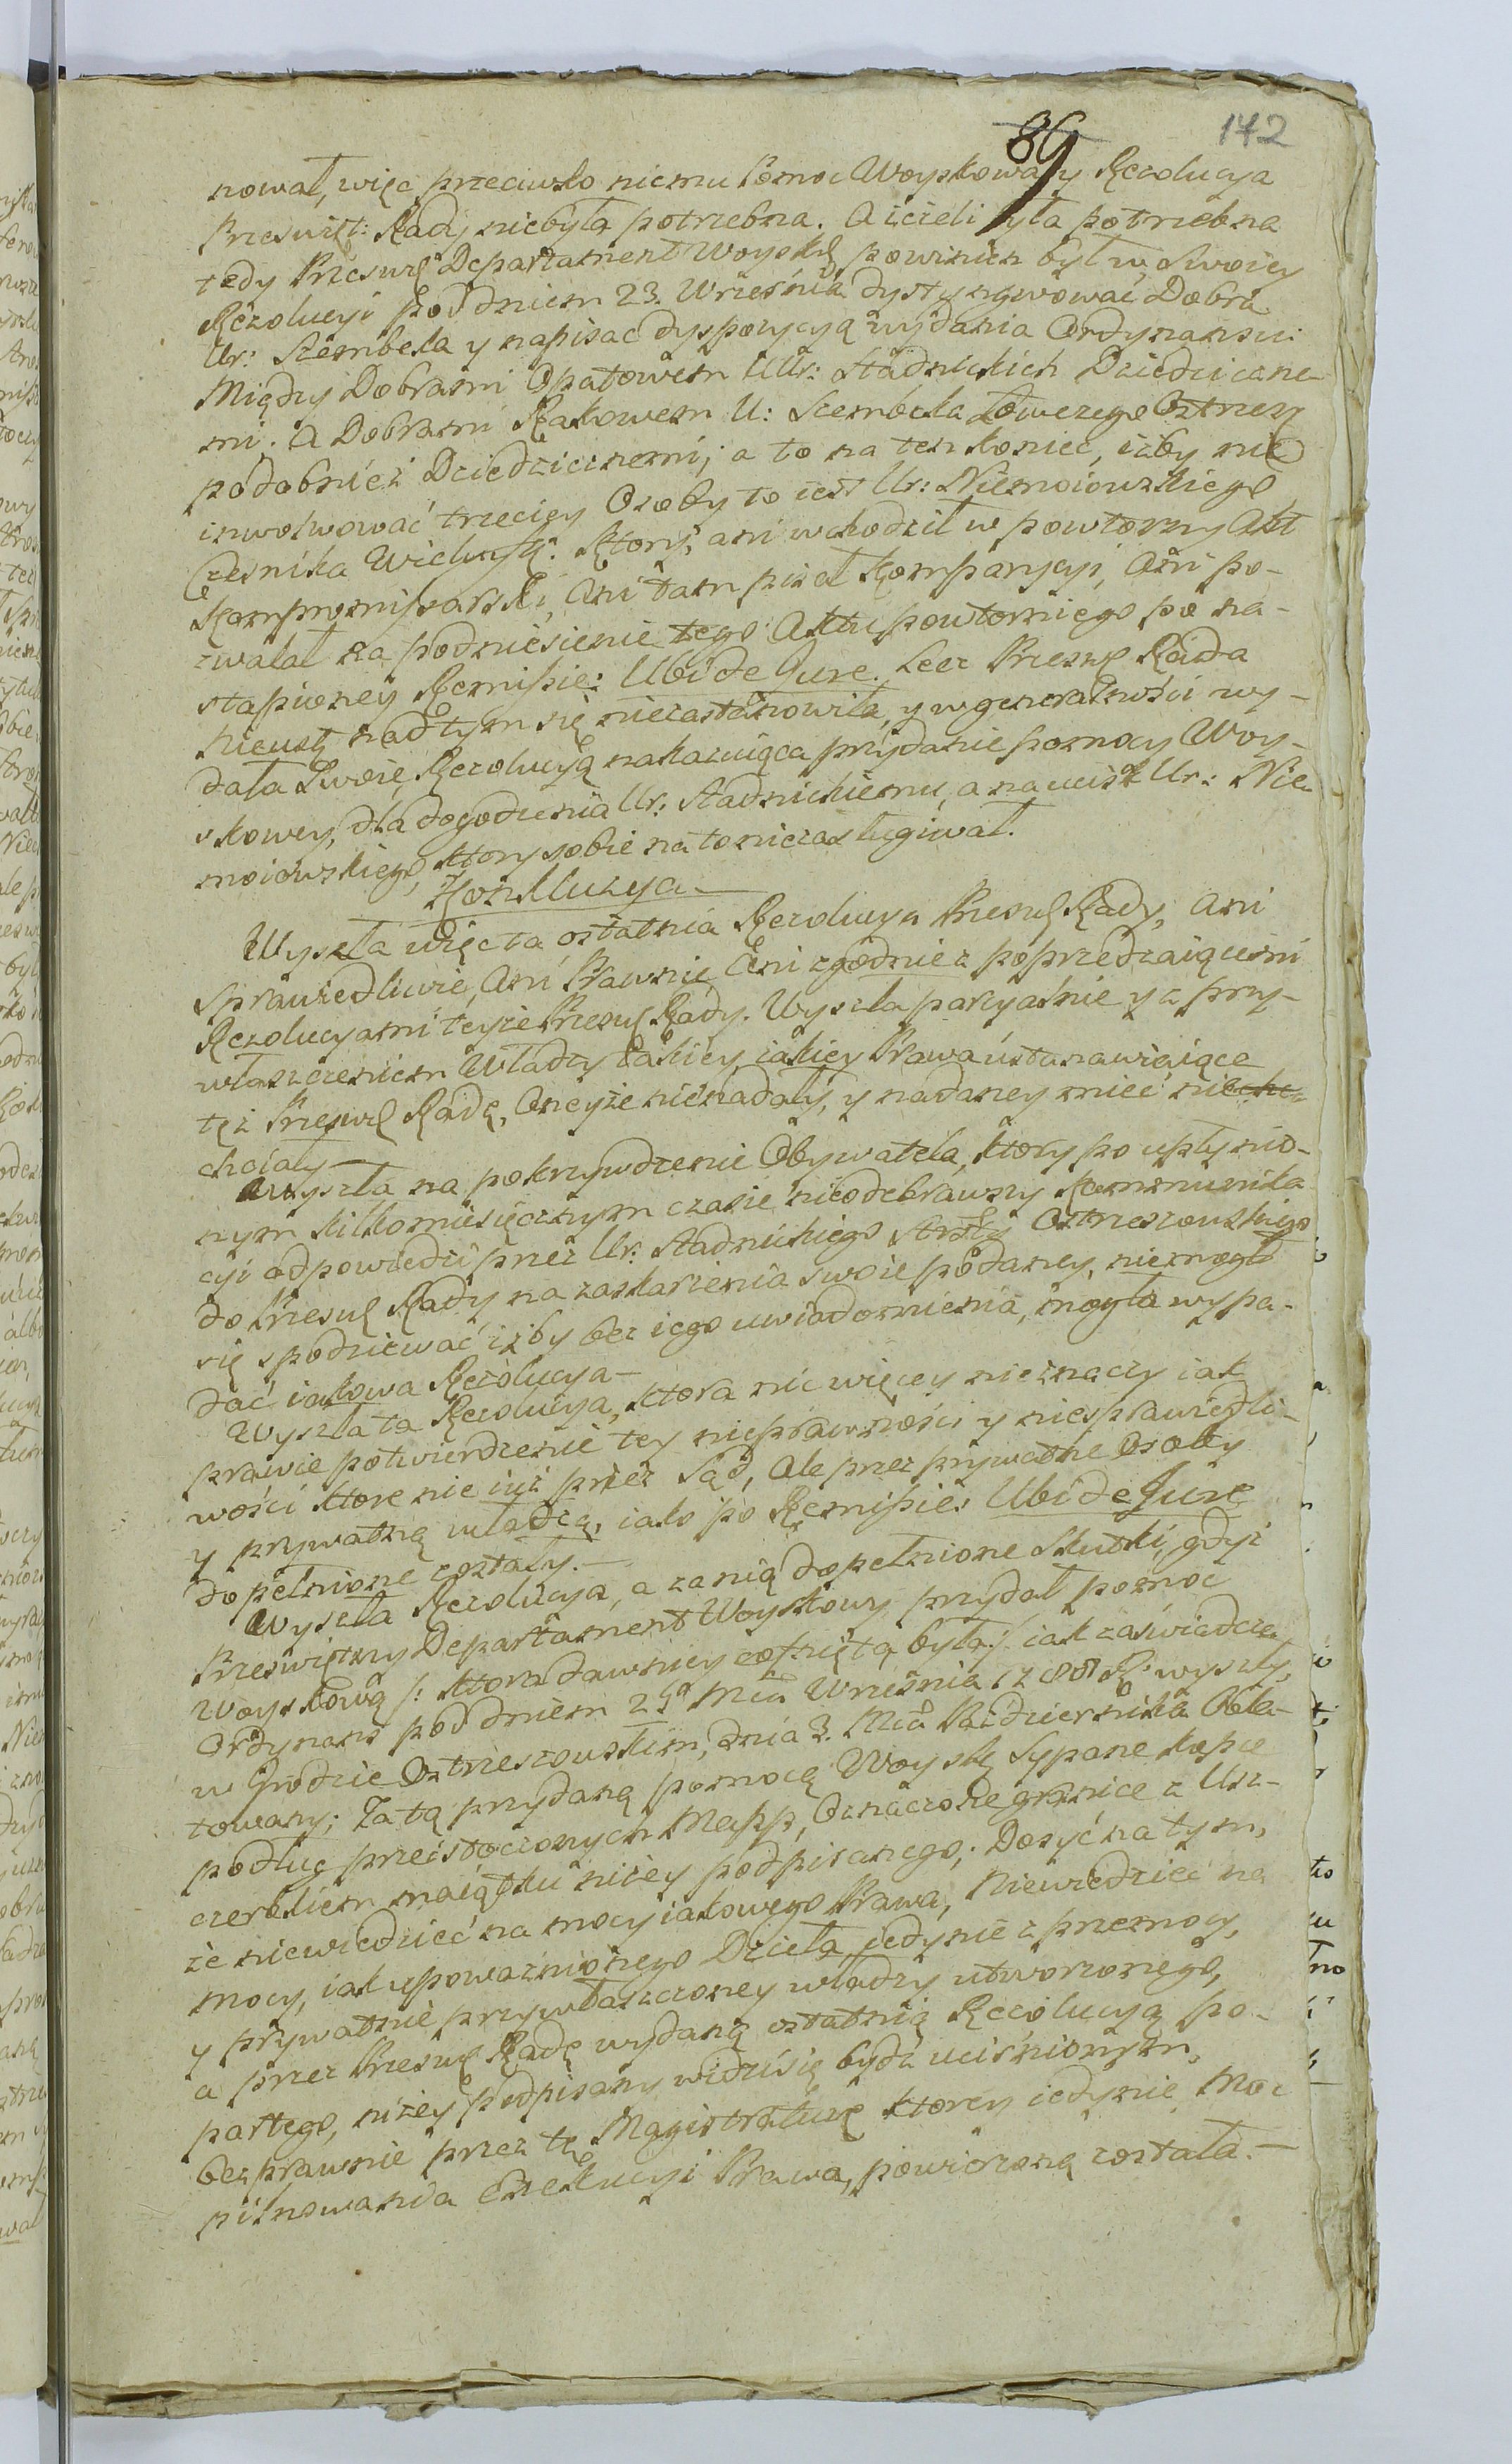 86 142
nował, więc przeciwko niemu Pomoc Woyskowa y Rezolucya
Przeswięt: Rady niebyła potrzebna. A ieżeli była potrzebna
tedy Przeswę Departament Woyskę powinien był w Swoiey
Rezolucyi pod dniem 23. Września dystyngwować Dobra
Ur: Szembeka y napisac dyspozycyą wydania Ordynansu:
Między Dobrami Opatowem UUr: Stadnickich Dziedziczne-
mi. A Dobrami Rakowem U: Szembeka Łowczego Ostrzesz
podobnież Dziedzicznemi; a to na ten koniec, iżby nie
inwolwować trzeciey Osoby to iest Ur: Niemoiowskiego
Czesnika Wieluńsk: Ktory, ani wchodził w powtorny Akt
Kompromissarski, Ani tam pisał Komparycyi, Ani po-
zwalał na podniesienie tego Aktu powtornego po na-
stąpioney Remissie: Ubi de Jure. Lecz Przeswę Rada
Nieust: nad tym się niezastanowiła, y w generalności wy-
dała Swoię Rezolucyą nakazuiącą przydanie pomocy Woy-
skowey, dla dogodzenia Ur: Stadnickiemu, a na ucisk Ur: Nie-
moiowskiego, ktory sobie na to niezasługiwał.
Konkluzya—
Wyszła więc ta ostatnia Rezolucya Przeswę Rady, Ani
Sprawiedliwie, Ani Prawnie, Ani zgodnie z poprzedzaiącemi
Rezolucyami teyże Przeswę Rady. Wyszła parcyalnie y z przy-
właszczeniem Władzy takiey, iakiey Prawa ustanawiaiące
tęż Przeswę Radę, Oneyże nienadały, y nadaney mieć nie
chciały—
Wyszła na pokrzywdzenie Obywatela, ktory po upłynio-
nym kilkomiesięcznym czasie nieodebrawszy Kommunika-
cyi odpowiedzi przez Ur: Stadnickiego Stty Ostrzeszowskiego
do Przeswę Rady na zaskarżenia swoie podaney, niemogł
się spodziewać iżby bez iego uwiadomienia, mogła wypa-
dać iakowa Rezolucya—
Wyszła ta Rezolucya, ktora nic więcey nieznaczy iak
prawie potwierdzenie tey nieprawności y niesprawiedli-
wości ktore nie iuż przez Sąd, Ale przez prywatne Osoby
y prywatną władzą, iako po Remissie: Ubi de Jure
dopełnione zostały.—
Wyszła Rezolucya, a za nią dopełnione Skutki, gdyż
Przeswiętny Departament Woyskowy przydał pomoc
Woyskową /: ktora dawniey cofnięta była :/ iak zaświadcza
Ordynans pod dniem 25ª Mca Września 1788 R: wyszły,
w Grodzie Ostrzeszowskim, dnia 3. Mca Października Obla-
towany; Za tą przydaną pomocą Woyskę Sypane kopce
podług przeistoczonych Mapp, Oznaczone granice z Usz-
czerbkiem maiątku niżey podpisanego; Dosyć na tym,
że niewiedzieć na mocy iakowego Prawa, Niewiedzieć na
mocy, iak upoważnionego Dzieła, iedynie z przemocy,
y prywatnie przywłaszczoney władzy utworzonego,
a przez Przeswę Radę wydaną ostatnią Rezolucyą po-
partego, niżey podpisany widzi się bydź uciśnionym,
bezprawnie przez tę Magistraturę ktorey iedynie Moc
pilnowania Exekucyi Prawa, powierzoną została.—